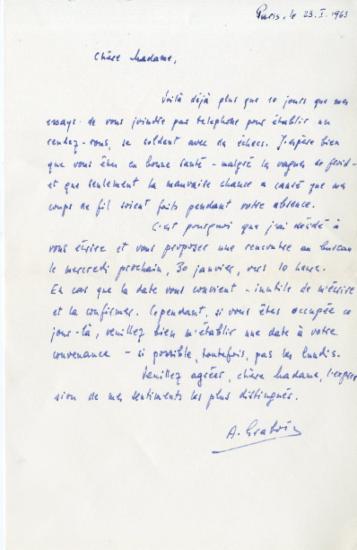 Paris, le 23. I. 1963
Chère Madame,
Voilà déjà plus que 10 jours que mes
essays de vous joindre par telephone pour établir un
rendez-vous, se soldent avec des échecs. J'espère bien
que vous êtes en bonne santé - malgré la vagues de froid -
et que seulement la mauvaise chance a causé que mes
coups de fil soient faits pendant votre absence.
C'est pourquoi que j'ai décidé à
vous écrire et vous proposer une rencontre au bureau
le mercredi prochain, 30 janvier, vers 10 heure.
En cas que la date vous convient - inutile de m'écrire
et la confirmer. Cependant, si vous êtes occupée ce
jour-là, veuillez bien m'établir une date à votre
convenance - si possible, toutefois, pas les lundis.
Veuillez agréer, chère Madame, l'expres
sion de mes sentiments les plus distingués.